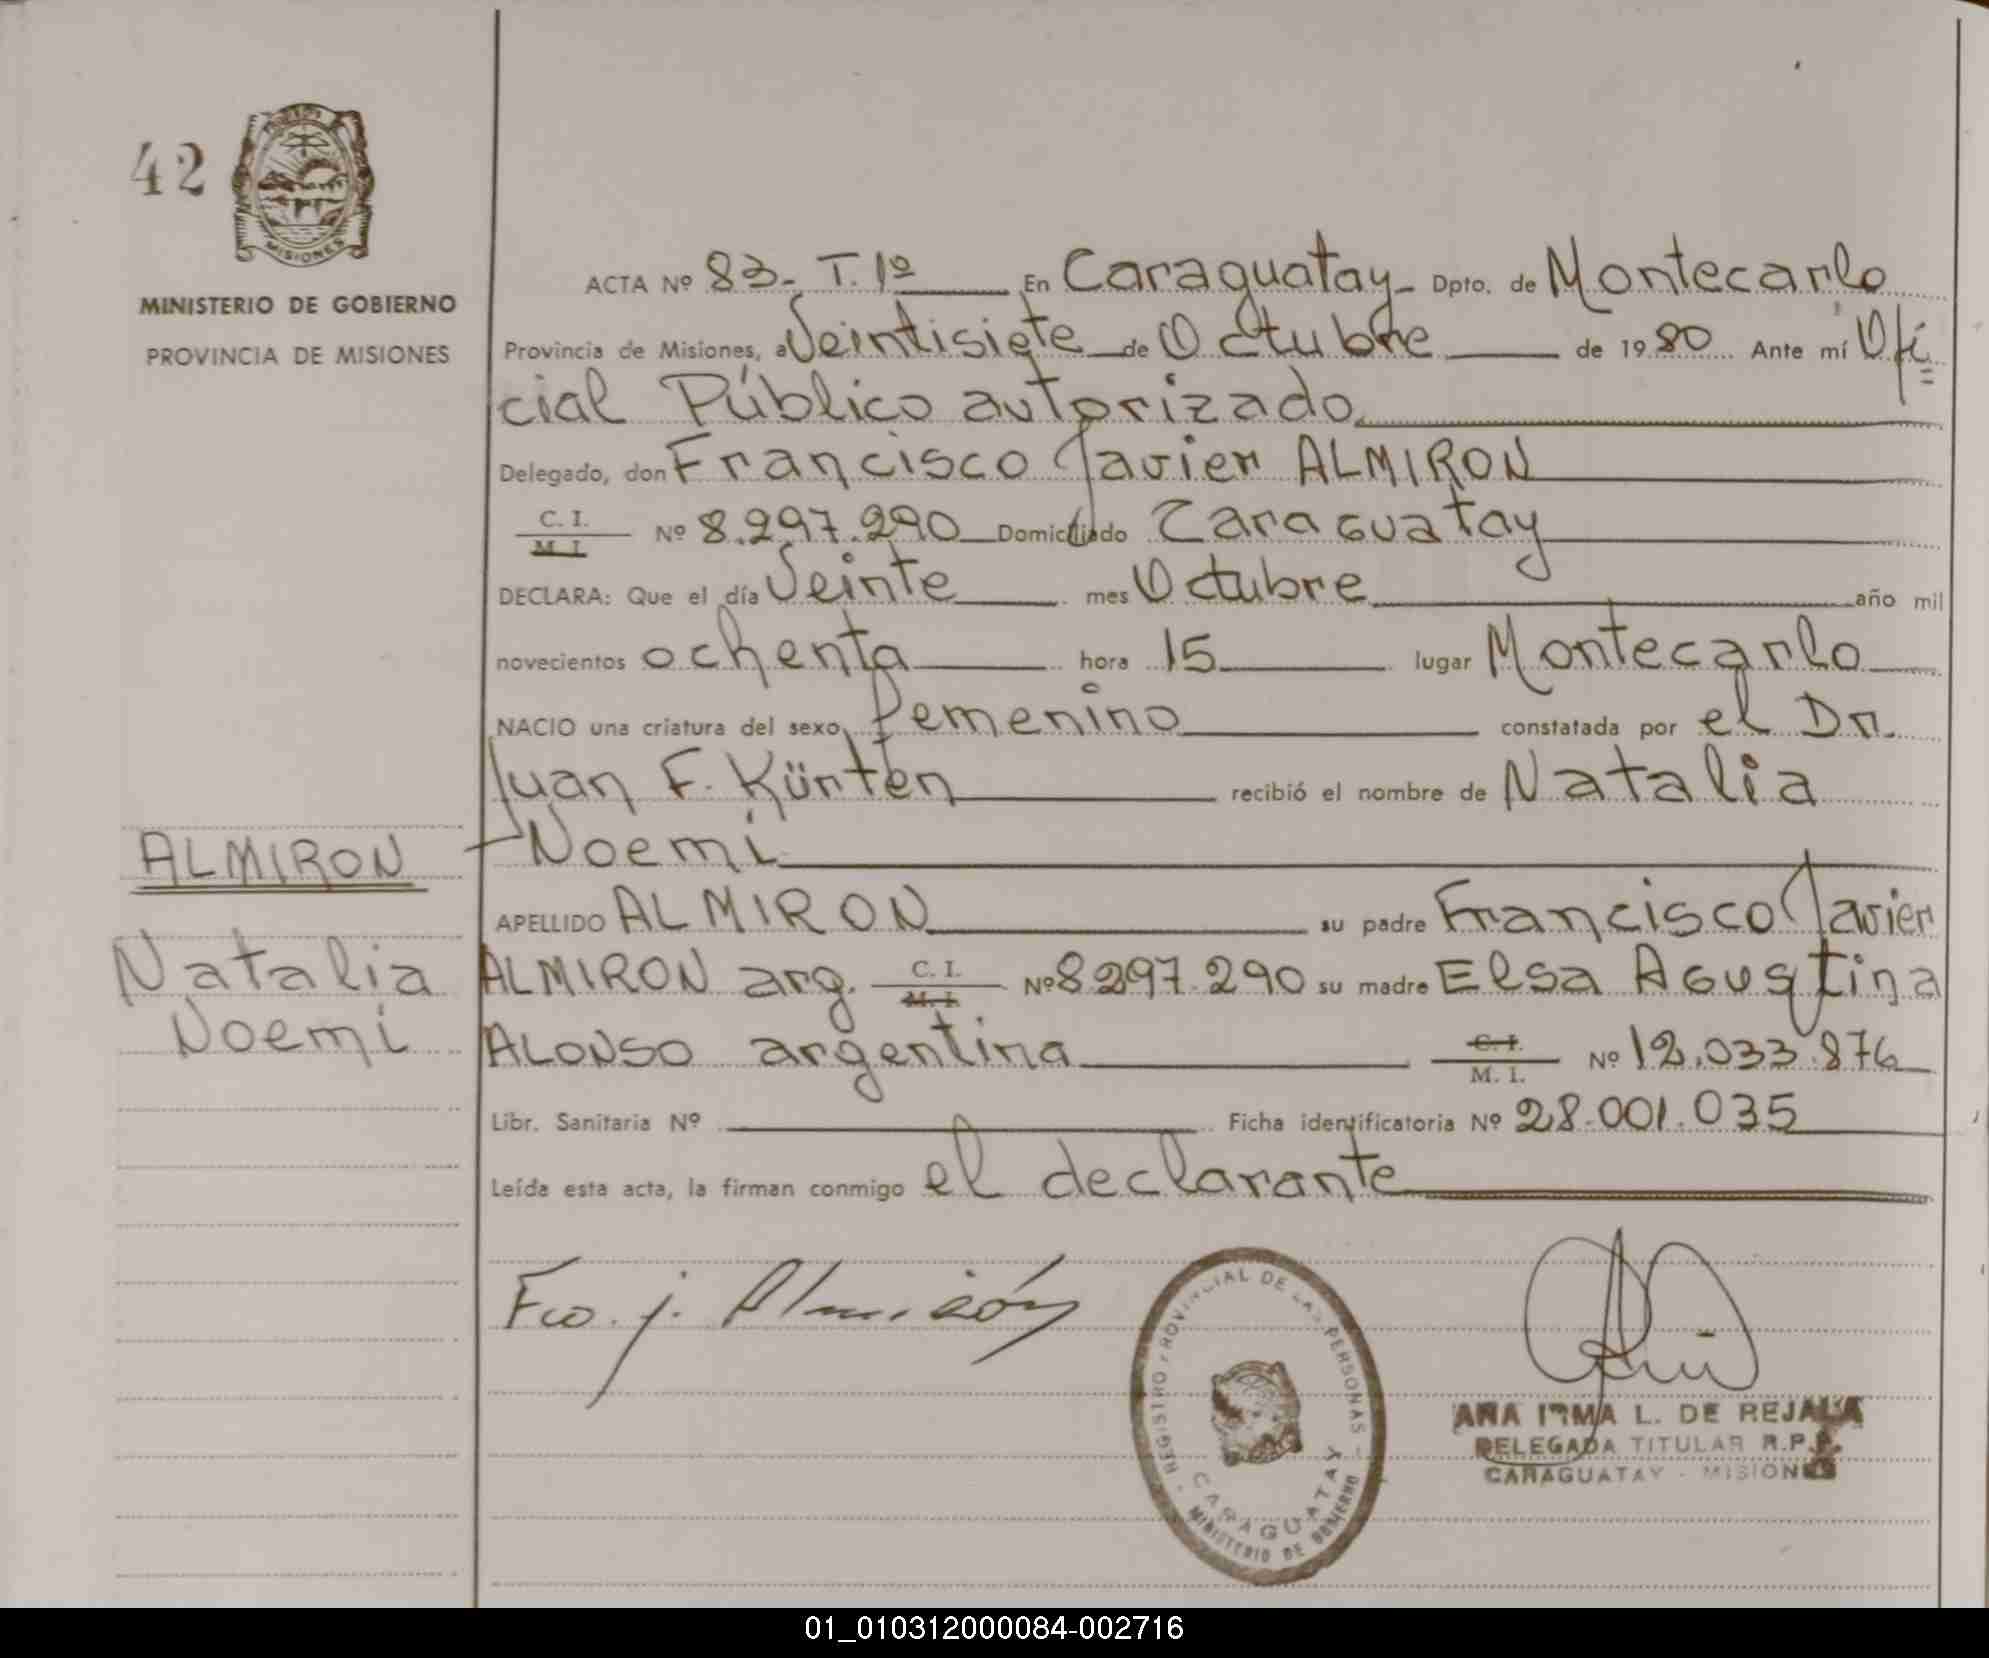 42
MISIONES
MINISTERIO DE GOBIERNO
PROVINCIA DE MISIONES
ACTA Nº 83- T. 1º En Caraguatay- Dpto. de Montecarlo
Provincia de Misiones, a Veintisiete de Octubre de 1980 Ante mí Ofi
cial Público autorizado
Delegado, don Francisco Javier ALMIRON
C. I.
M. I. Nº 8.297.290 Domiciliado Caraguatay
DECLARA: Que el día Veinte mes Octubre año mil
novecientos ochenta hora 15 lugar Montecarlo
NACIO una criatura del sexo femenino constatada por el Dr.
Juan F. Kürten recibió el nombre de Natalia
Noemi
APELLIDO ALMIRON su padre Francisco Javier
ALMIRON arg. C. I. M. I. Nº 8297.290 su madre Elsa Agustina
ALONSO argentina C. I. M. I. Nº 12.033.876
Libr. Sanitaria Nº Ficha identificatoria Nº 28.001.035
Leída esta acta, la firman conmigo el declarante
ALMIRON
Natalia
Noemi
Fco. J. Almirón
REGISTRO PROVINCIAL DE LAS PERSONAS
CARAGUATAY
MINISTERIO DE GOBIERNO
ANA IRMA L. DE REJALA
DELEGADA TITULAR R.P.P.
CARAGUATAY - MISIONES
01_010312000084-002716